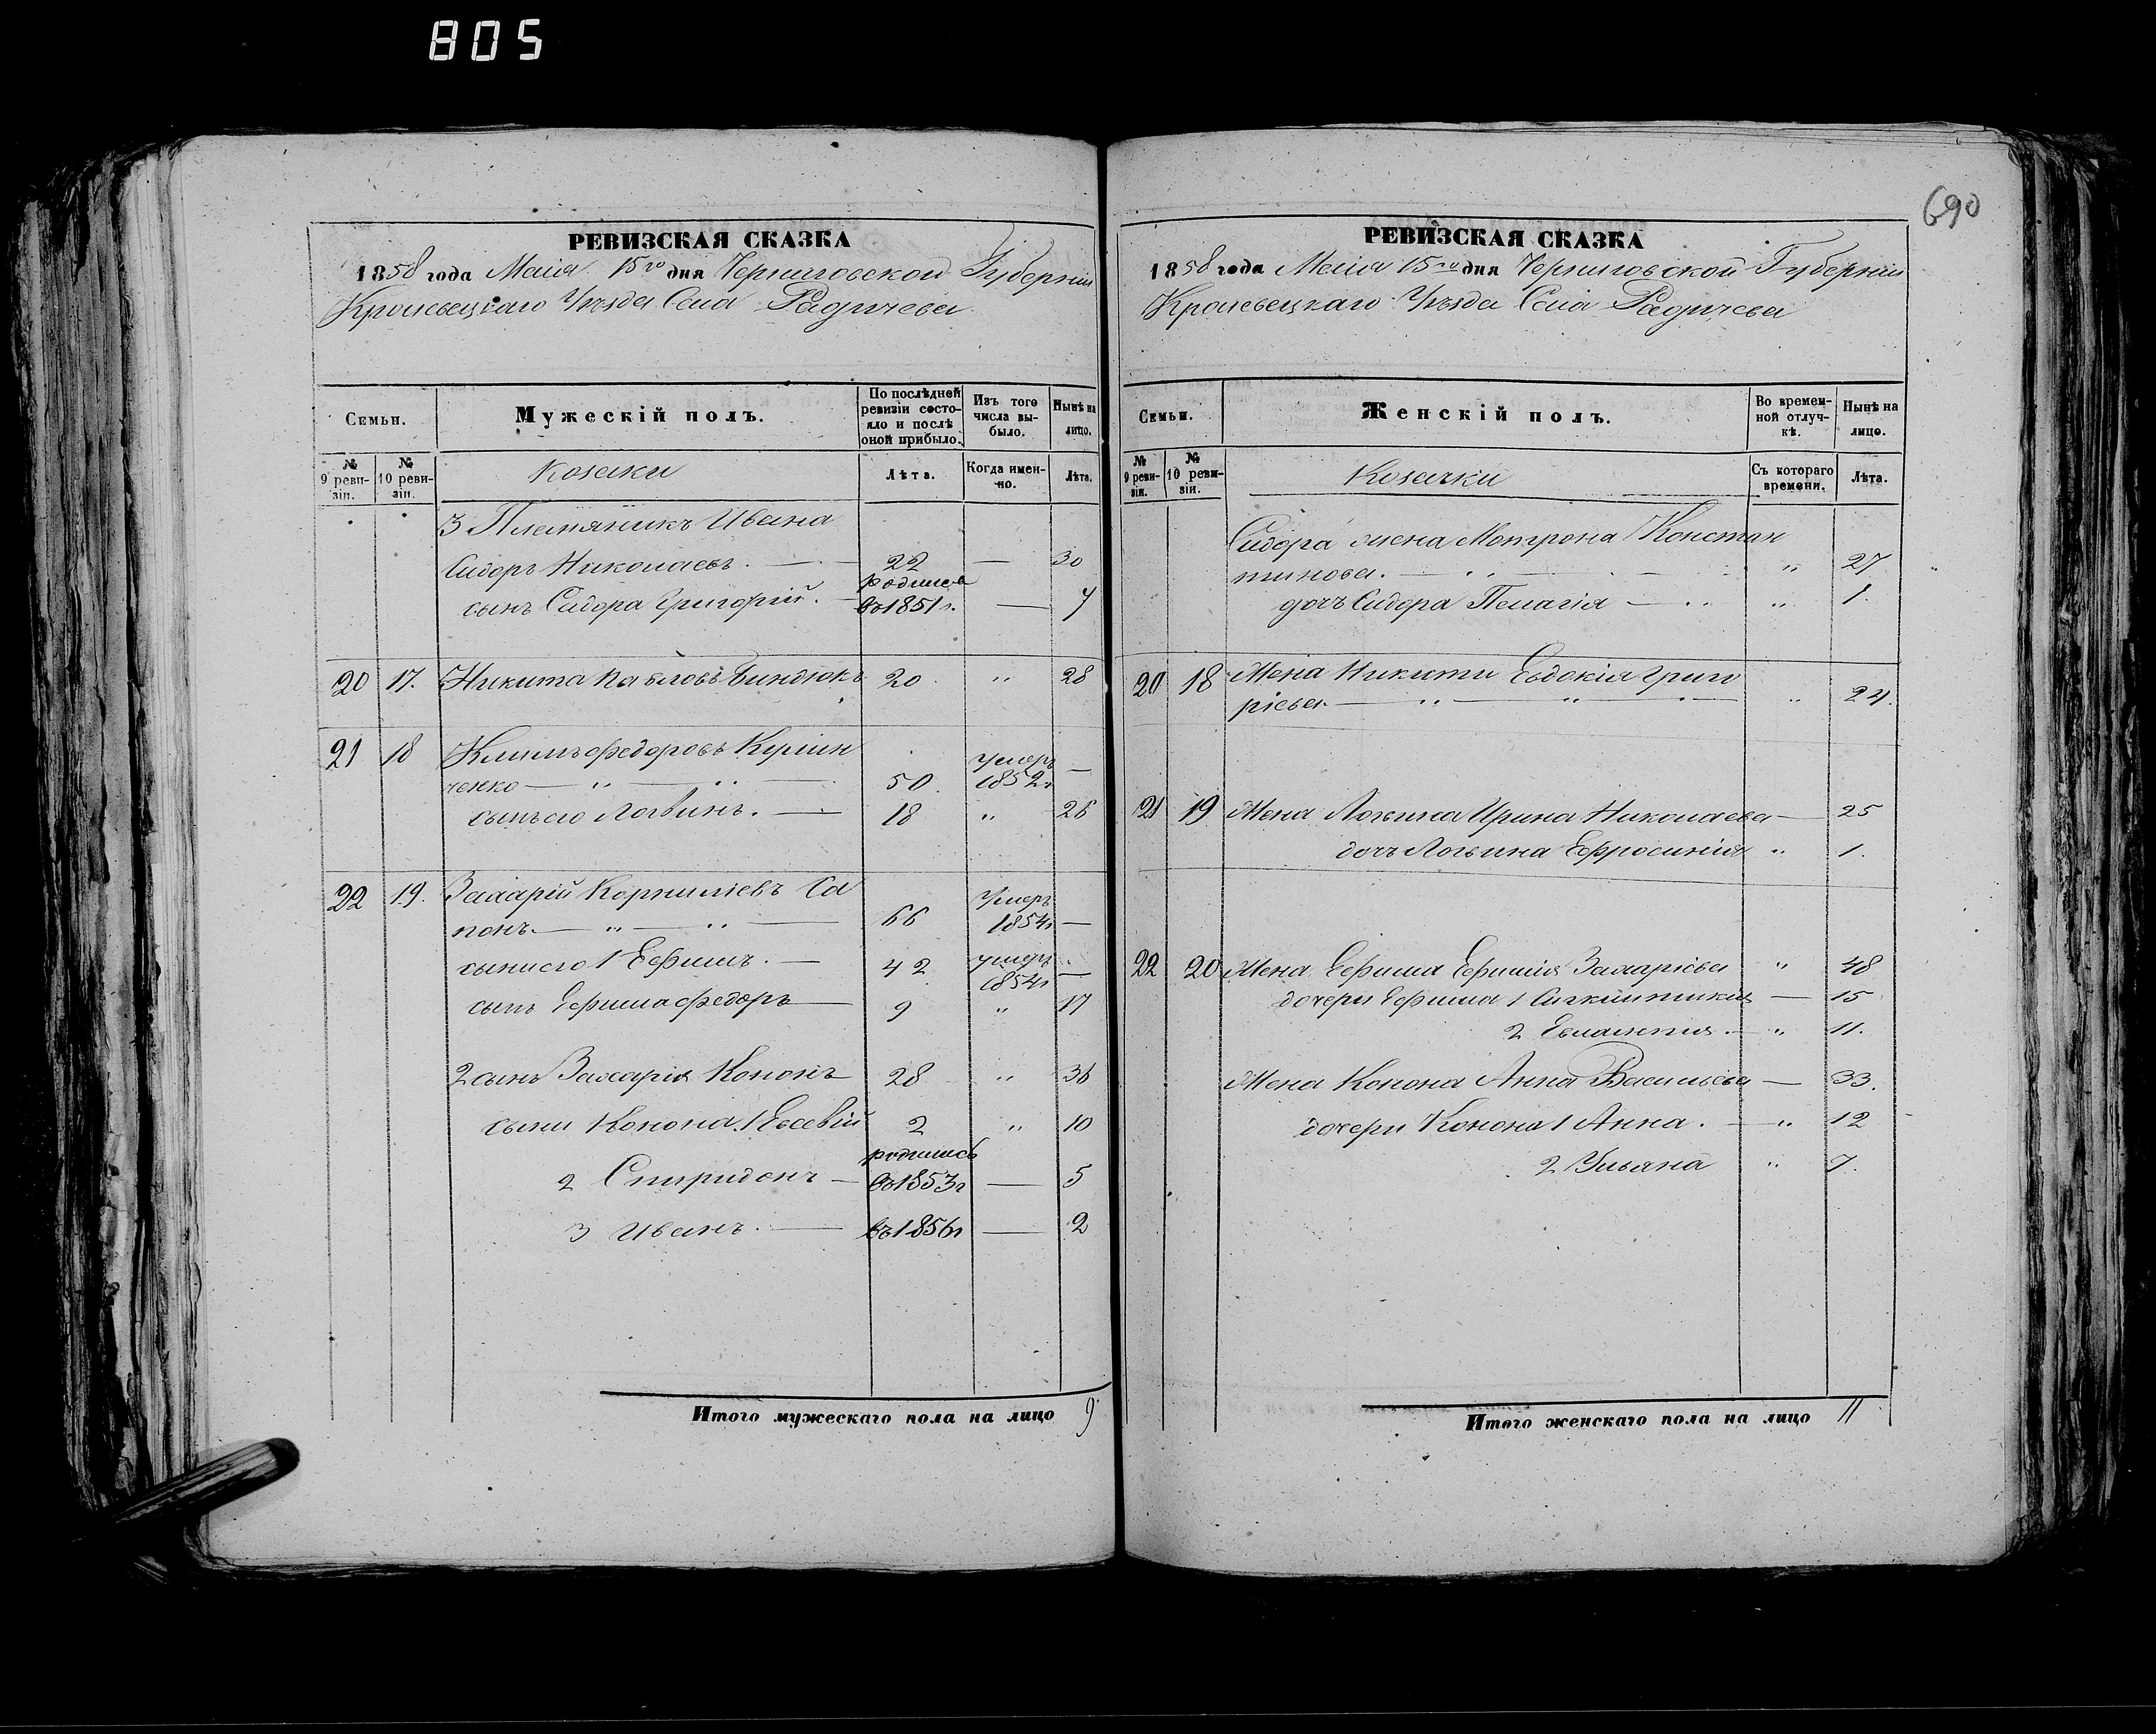 805
690
РЕВИЗСКАЯ СКАЗКА
1858 года Маія 15го дня Черниговской Губерніи
Кролевецкаго Уѣзда Села Радичева
Семьи.
Мужескій полъ.
По послѣдней ревизіи состояло и послѣ оной прибыло.
Изъ того числа выбыло.
Нынѣ на лицо.
№ 9 ревизіи.
№ 10 ревизіи.
Козаки
Лѣта.
Когда именно.
Лѣта.
3 Племяникъ Ивана
Сидоръ Николаевъ. 22 — 30
родился
сынъ Сидора Григорій. въ 1851г. — 7
20 17. Никита Павловъ Биндюкъ 20 " 28
21 18 Климъ Федоровъ
умеръ
ченко — " — " — 50. 1852г —
сынъ его Логвинъ. — 18 " 26
22 19. Захарій Корниліевъ Са
умеръ
понъ. — " — " — 66 1854г —
сыни его 1 Ефимъ. — 42 умеръ
1854г —
сынъ Ефима Федоръ — 9 " 17
2 сынъ Захарія Кононъ 28 " 36
сыни Конона 1 Евсевій 2 " 10
родились
2 Спиридонъ — въ 1853г — 5
3 Иванъ. — въ 1856г — 2
Итого мужескаго пола на лицо 9
РЕВИЗСКАЯ СКАЗКА
1858 года Маія 15го дня Черниговской Губерніи
Кролевецкаго Уѣзда Села Радичева
Семьи.
Женскій полъ.
Во временной отлучкѣ.
Нынѣ на лицо.
№ 9 ревизіи.
№ 10 ревизіи.
Козачки
Съ котораго времени.
Лѣта.
Сидора жена Мотрона Констан
тинова. — " 27
дочь Сидора Пелагія — " 1.
20 18 Жена Никити Евдокія Григо
ріева. — " — " — " 24.
21 19 Жена Логвина Ирина Николаева — 25
дочь Логвина Ефросинія " 1.
22 20 Жена Ефима Ефимія Захаріева " 48
дочери Ефима 1 — 15
2 Евлампія. — " 11.
Жена Конона Анна Васильева — 33.
дочери Конона 1 Анна. — " 12
2 Ульяна " 7.
Итого женскаго пола на лицо 11